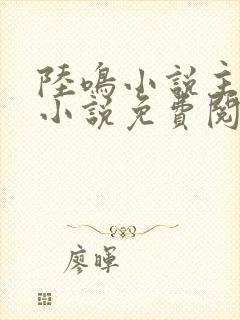 陸鳴小說主
小說免費閱
廖暉